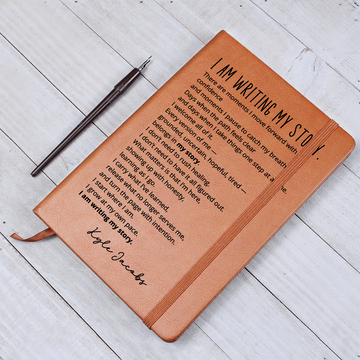 I AM WRITING MY STORY.
There are moments I move forward with
confidence
and moments I pause to catch my breath.
Days when the path feels clear
and days when I take things one step at a time.
I welcome all of it —
Every version of me —
grounded, uncertain, hopeful, tired —
belongs in my story.
I don't need to rush healing.
I don't need to have it all figured out.
What matters is that I'm here,
showing up with honesty,
learning as I go.
I carry what I've learned,
release what no longer serves me,
and turn the page with intention.
I start where I am.
I grow at my own pace.
I am writing my story.
Kyle Jacobs